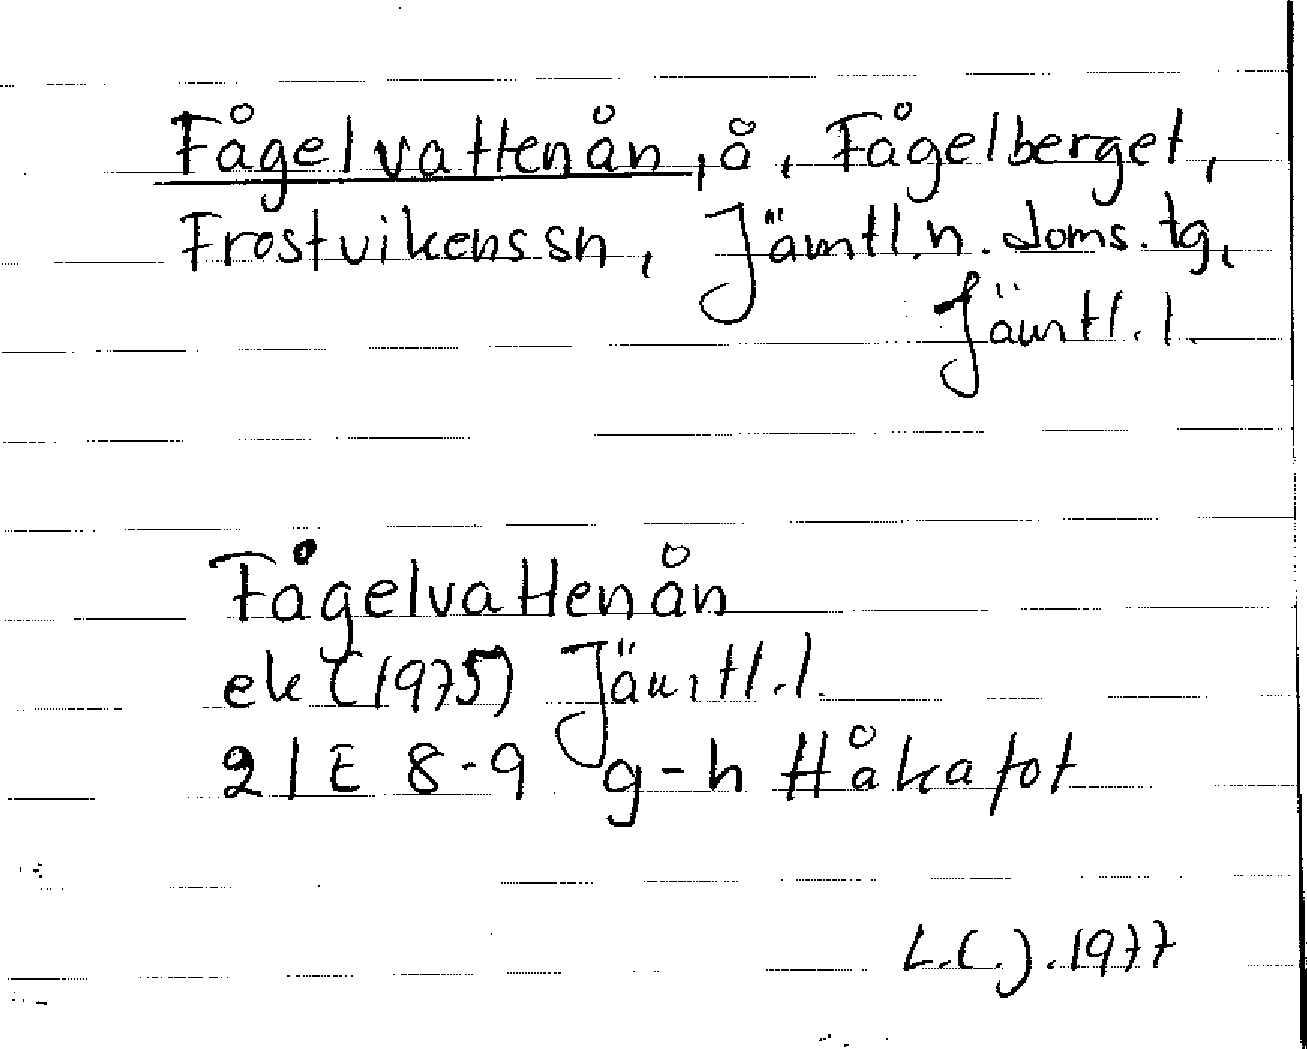 Fågelvattenån, å, Fågelberget,
Frostvikens sn, Jämtl. n. doms. tg,
Jämtl. l.
Fågelvattenån
ek (1975) Jämtl. l.
21E 8-9 g-h Håkafot
L.C.J. 1977